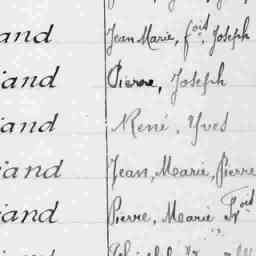 and Jean Marie, fçoit, Joseph
and Pierre, Joseph
and René, Yves
and Jean, Marie, Pierre
and Pierre, Marie